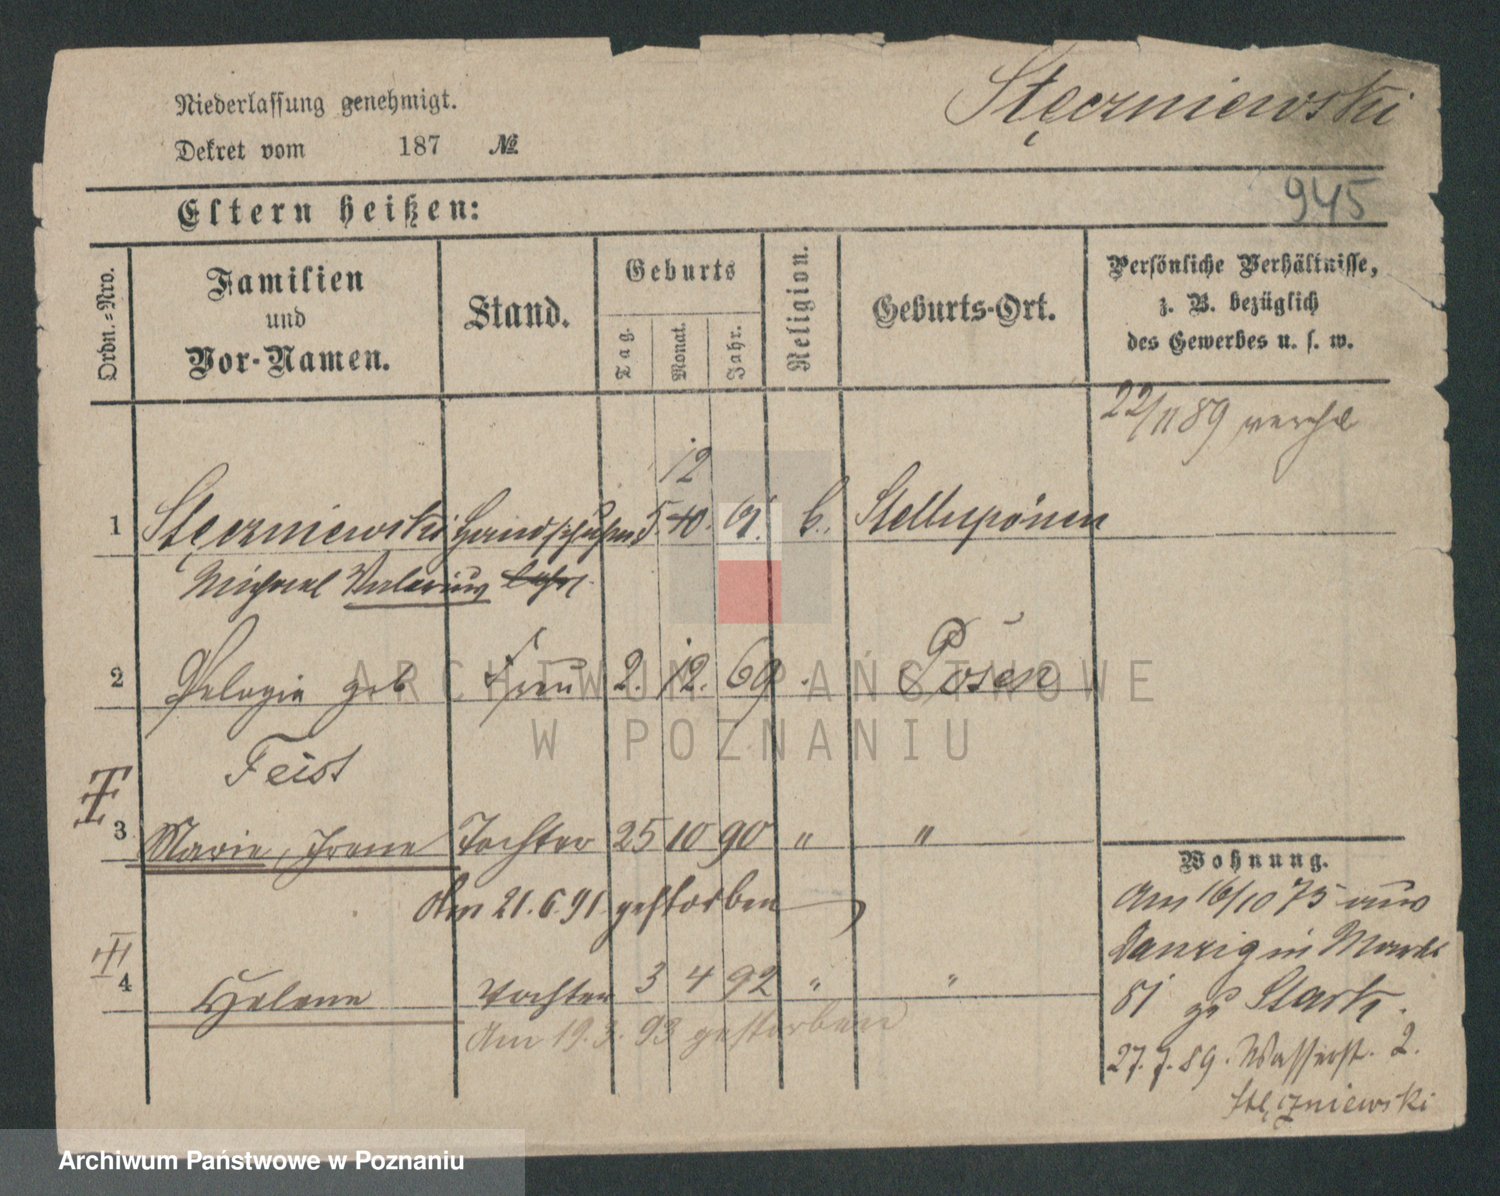 Niederlassung genehmigt.
Stęczniewski
Dekret vom 187 №
945
Eltern heißen:
Ordn.=Nro.
Familien
und
Vor-Namen.
Stand.
Geburts
Tag.
Monat.
Jahr.
Religion.
Geburts-Ort.
Persönliche Verhältnisse,
z. B. bezüglich
des Gewerbes u. s. w.
22/11 89 verehel
12
1 Stęczniewski Handschuhm 5. 10. 61. Stallupönen
Michael Valerius
2 Pelagia geb Frau 2. 12. 69 Posen
Feist
3 Marie, Irene Tochter 25 10 90 " "
Am 21.6.91 gestorben
4 Helene Tochter 3 4 92 " "
Am 19.3.93 gestorben
Wohnung.
Am 16/10 75 aus
Danzig in Markt
81 zu Stark.
27.7.89. Wasserst. 2.
Stęczniewski
ARCHIWUM PAŃSTWOWE
W POZNANIU
Archiwum Państwowe w Poznaniu